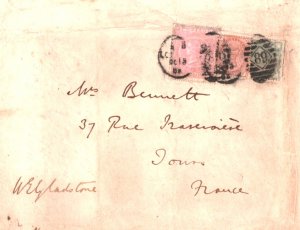 Mrs Bennett
37 Rue Traversière
Tours
France
WEGladstone